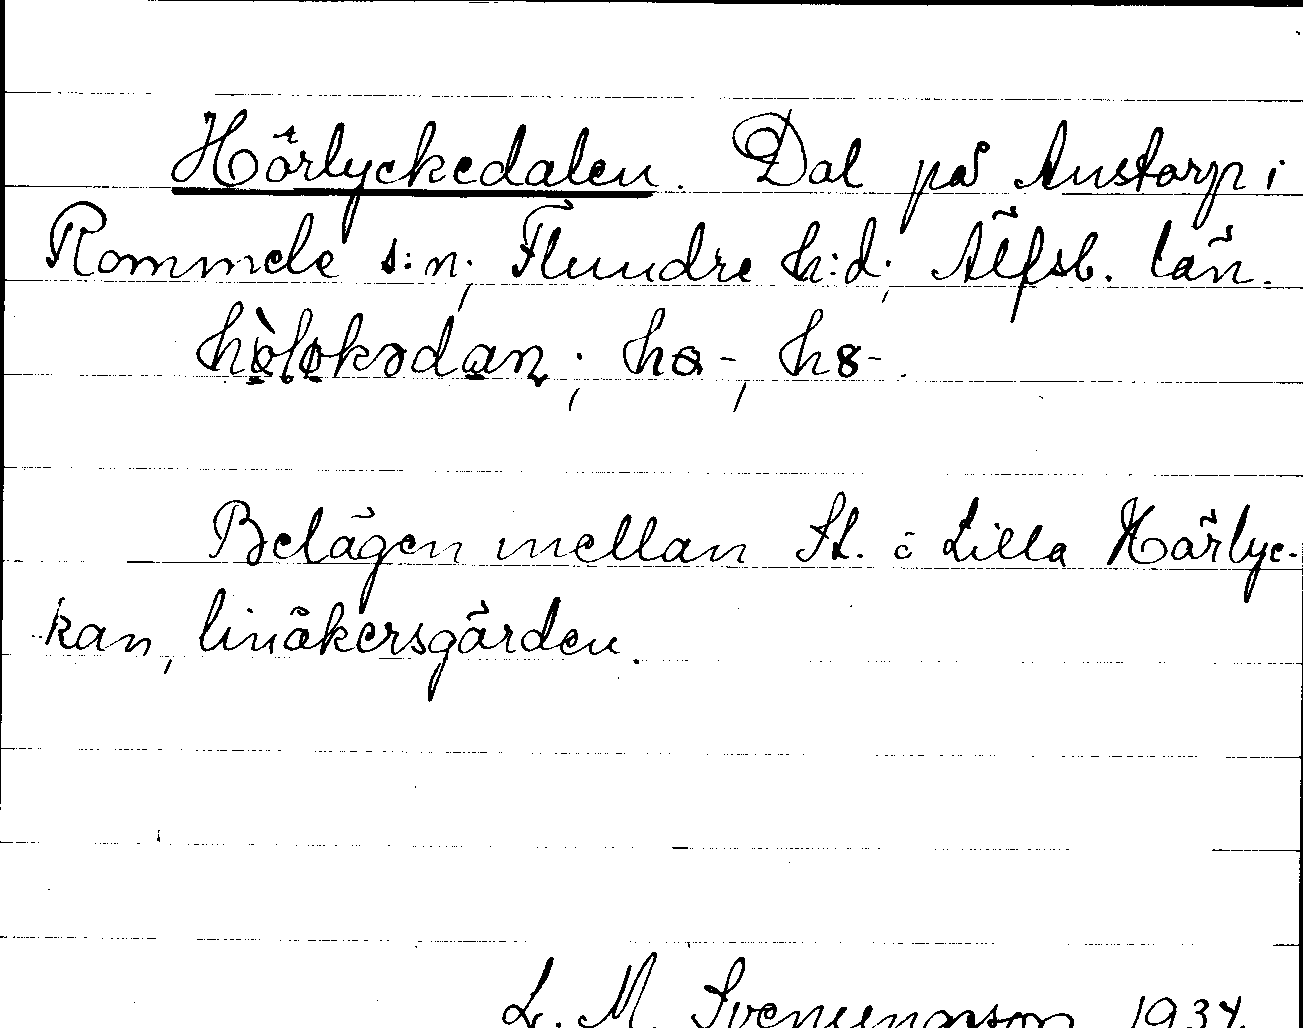 Härlyckedalen. Dal på Anstorp i
Rommele s:n; Flundre h:d; Älfsb. län.
Belägen mellan St. o Lilla Härlyc-
kan, linåkersgärden.
L. M. Svenungsson 1934.